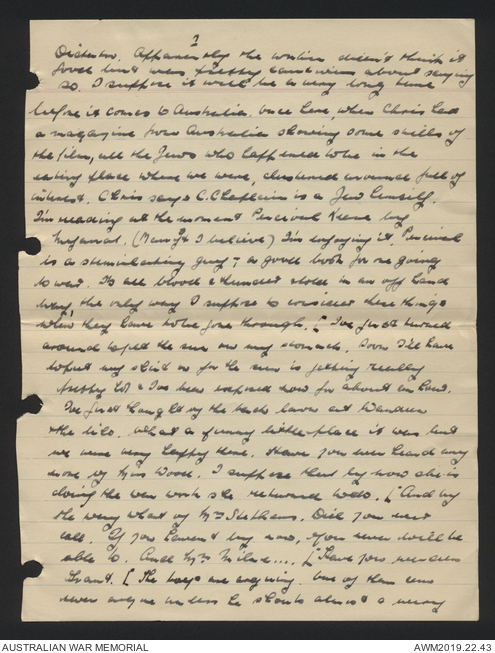 1
Dictator. Apparently the writer didn't think it
good but was pretty cautious about saying
so. I suppose it will be a very long time
before it comes to Australia. Once here, when Chris had
a magazine from Australia showing some stills of
the film, all the Jews who happened to be in the
eating place where we were, clustered around full of
interest. Chris says C. Chaplain is a Jew himself.
I'm reading at the moment Percival Keene by
Marryat. I'm enjoying it. Percival
is a guy - a good book for one going
to war. Its all blood & thunder told in an off hand
way, the only way I suppose to consider these things
when they have to be gone through. [I've just turned
around to get the sun on my stomach. Soon I'll have
to put my shirt on for the sun is getting really
pretty hot & I've been exposed now for about an hour.
I've just thought of the back lawn at
& the lilo. What a funny little place it was but
we were very happy there. Have you ever heard any
more of Miss Wood. I suppose that by now she is
doing the war work she returned to do. [And by
the way what of Mrs Stephens. Did you ever
call. If you haven't by now, you never will be
able to. And Mrs Milne.... [Have you
Grant. [The boys are arguing. One of them can
never argue unless he shouts about a
AUSTRALIAN WAR MEMORIAL
AWM2019.22.43